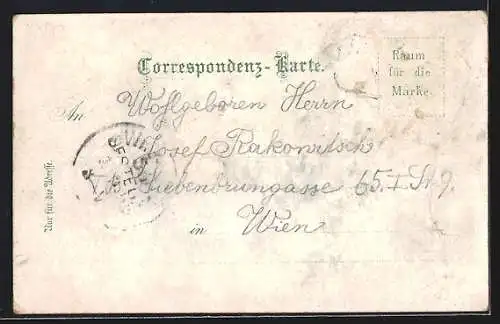 Correspondenz-Karte.
Raum
für die
Marke.
An Wohlgeboren Herrn
Josef Rakowitsch
Siebenbrungasse 65. I. St. 9.
in Wien
Nur für die Adresse.
WIEN
BESTELLT